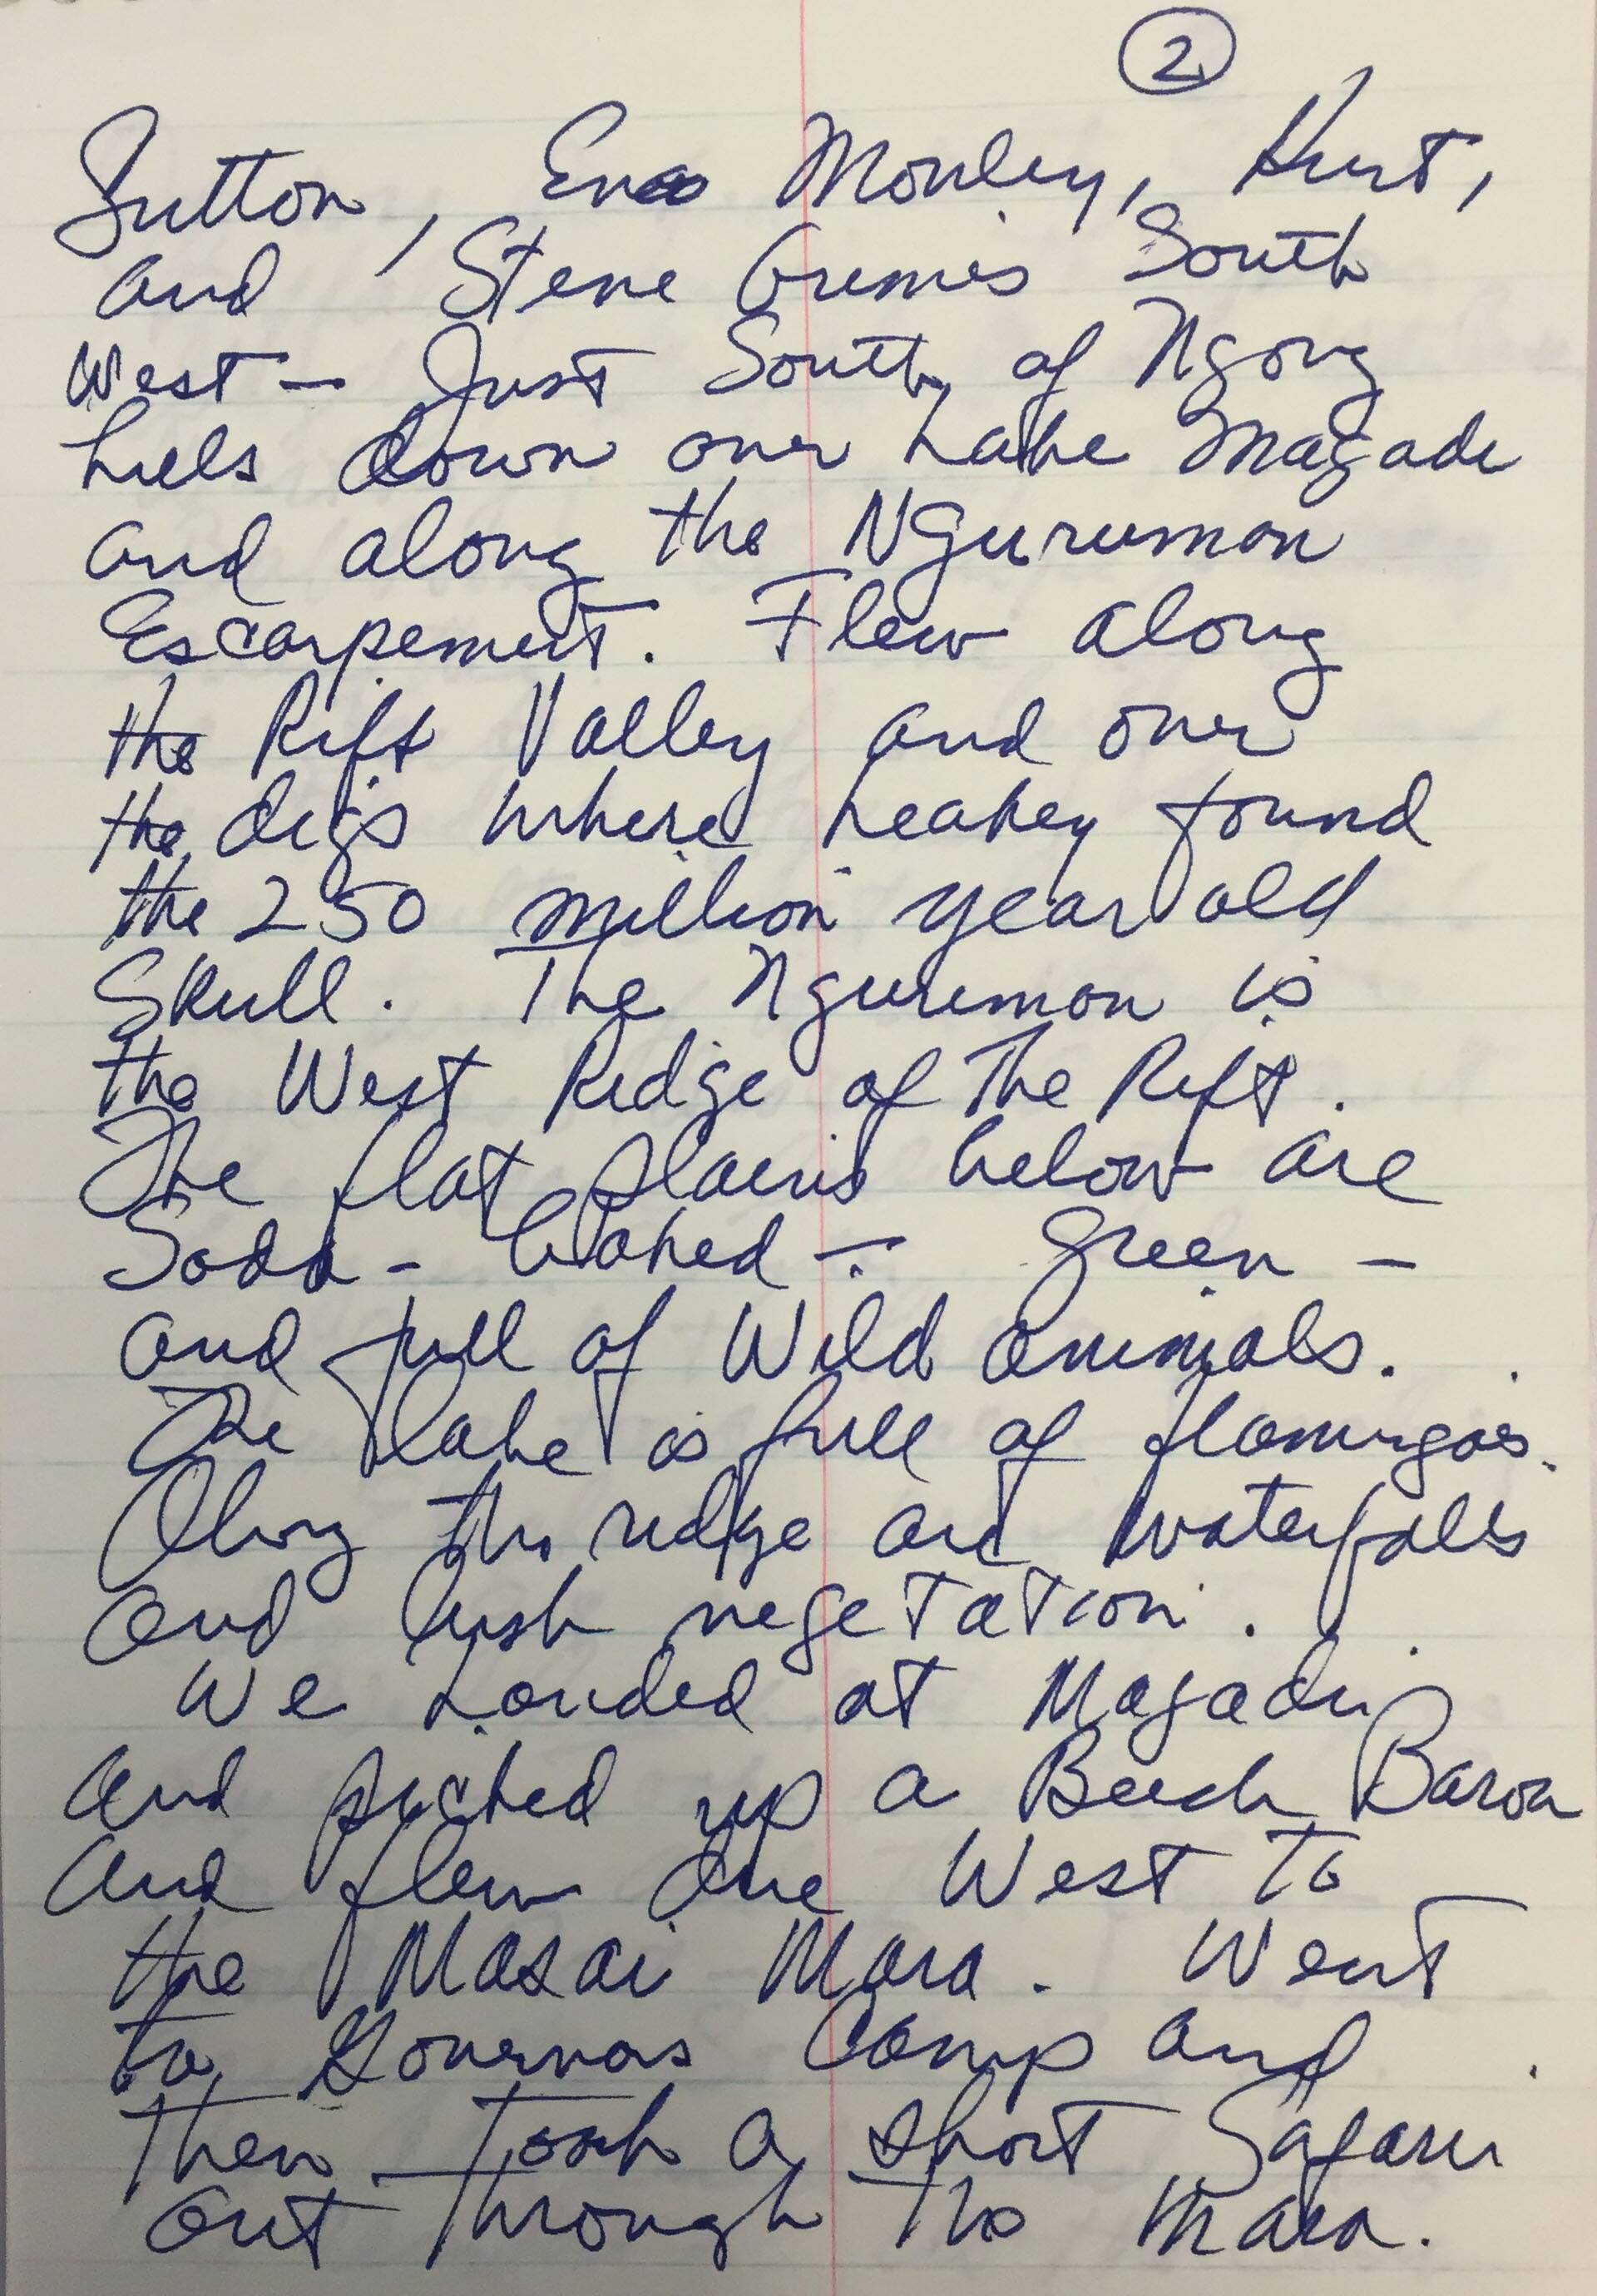 2
Sutton, Eva Monley, Kurt,
and Steve Grimes South
West — Just South of Ngong
hills down over Lake Magadi
and along the Ngurumon
Escarpement. Flew along
the Rift Valley and over
the digs where Leakey found
the 250 million year old
Skull. The Ngurumon is
the West Ridge of The Rift.
The flat plains below are
Soda - baked - green -
and full of Wild animals.
The lake is full of flamingos.
Along the ridge are waterfalls
and lush vegetation.
We Landed at Magadi
and picked up a Beech Baron
and flew due West to
the Masai Mara. Went
to Governors Camp and
then took a short Safari
out through the Mara.